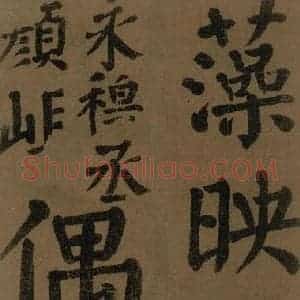 藻映
永穆丞
偶
Shufaziliao.COM